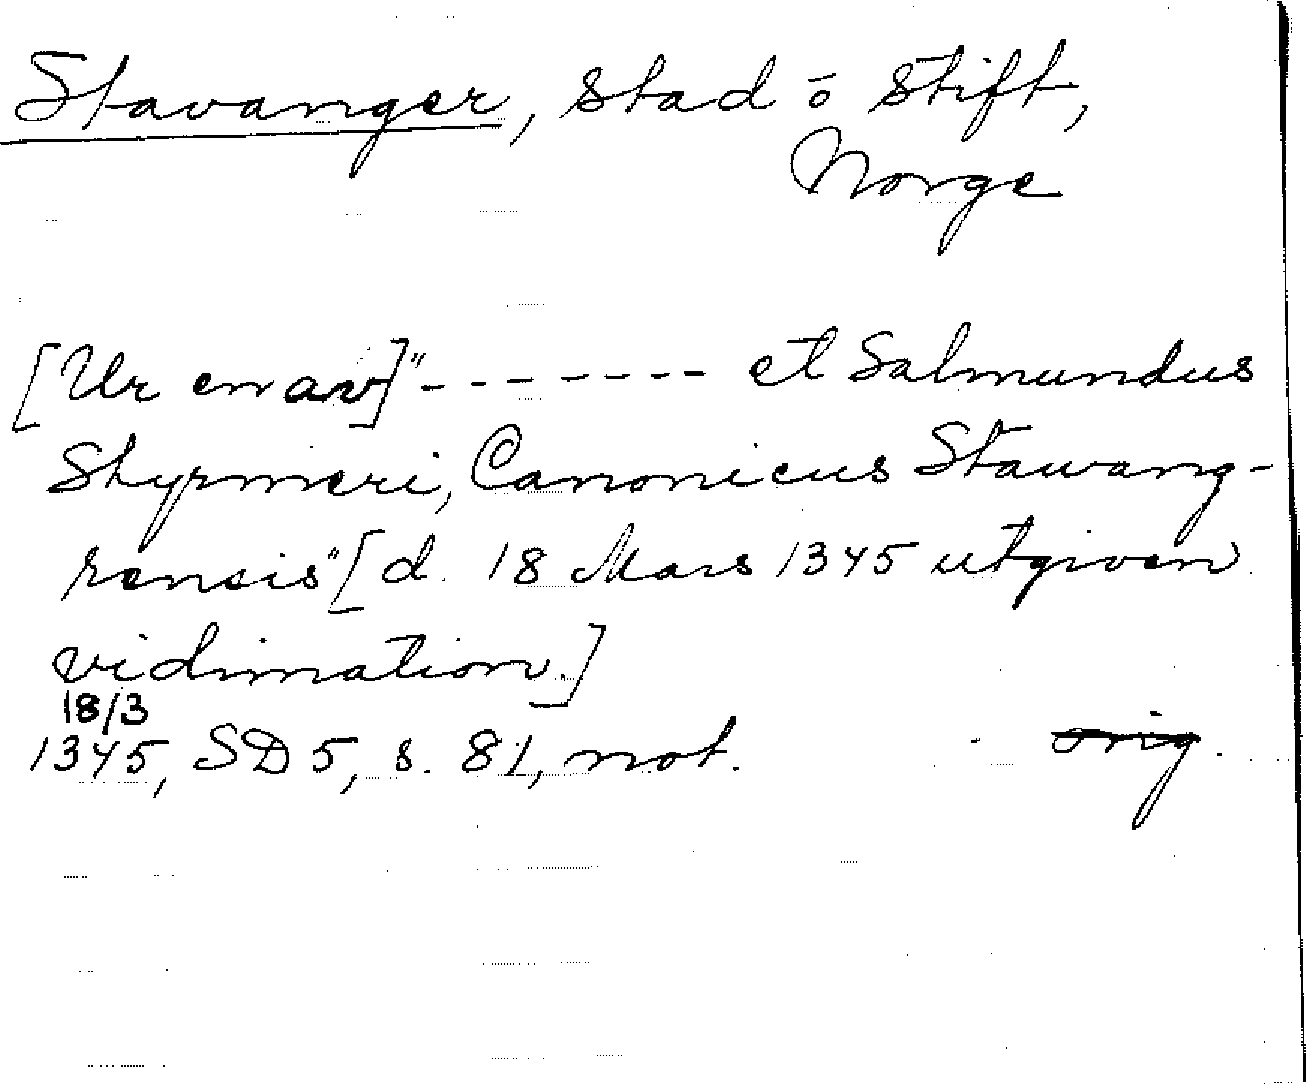 Stavanger, stad ō stift,
Norge
[Ur en av]"-------- et Salmundus
Skyrmeri, Canonicus Stawang-
rensis" [d. 18 Mars 1345 utgiven
vidimation.]
18/3
1345, SD 5, s. 81, not. orig.